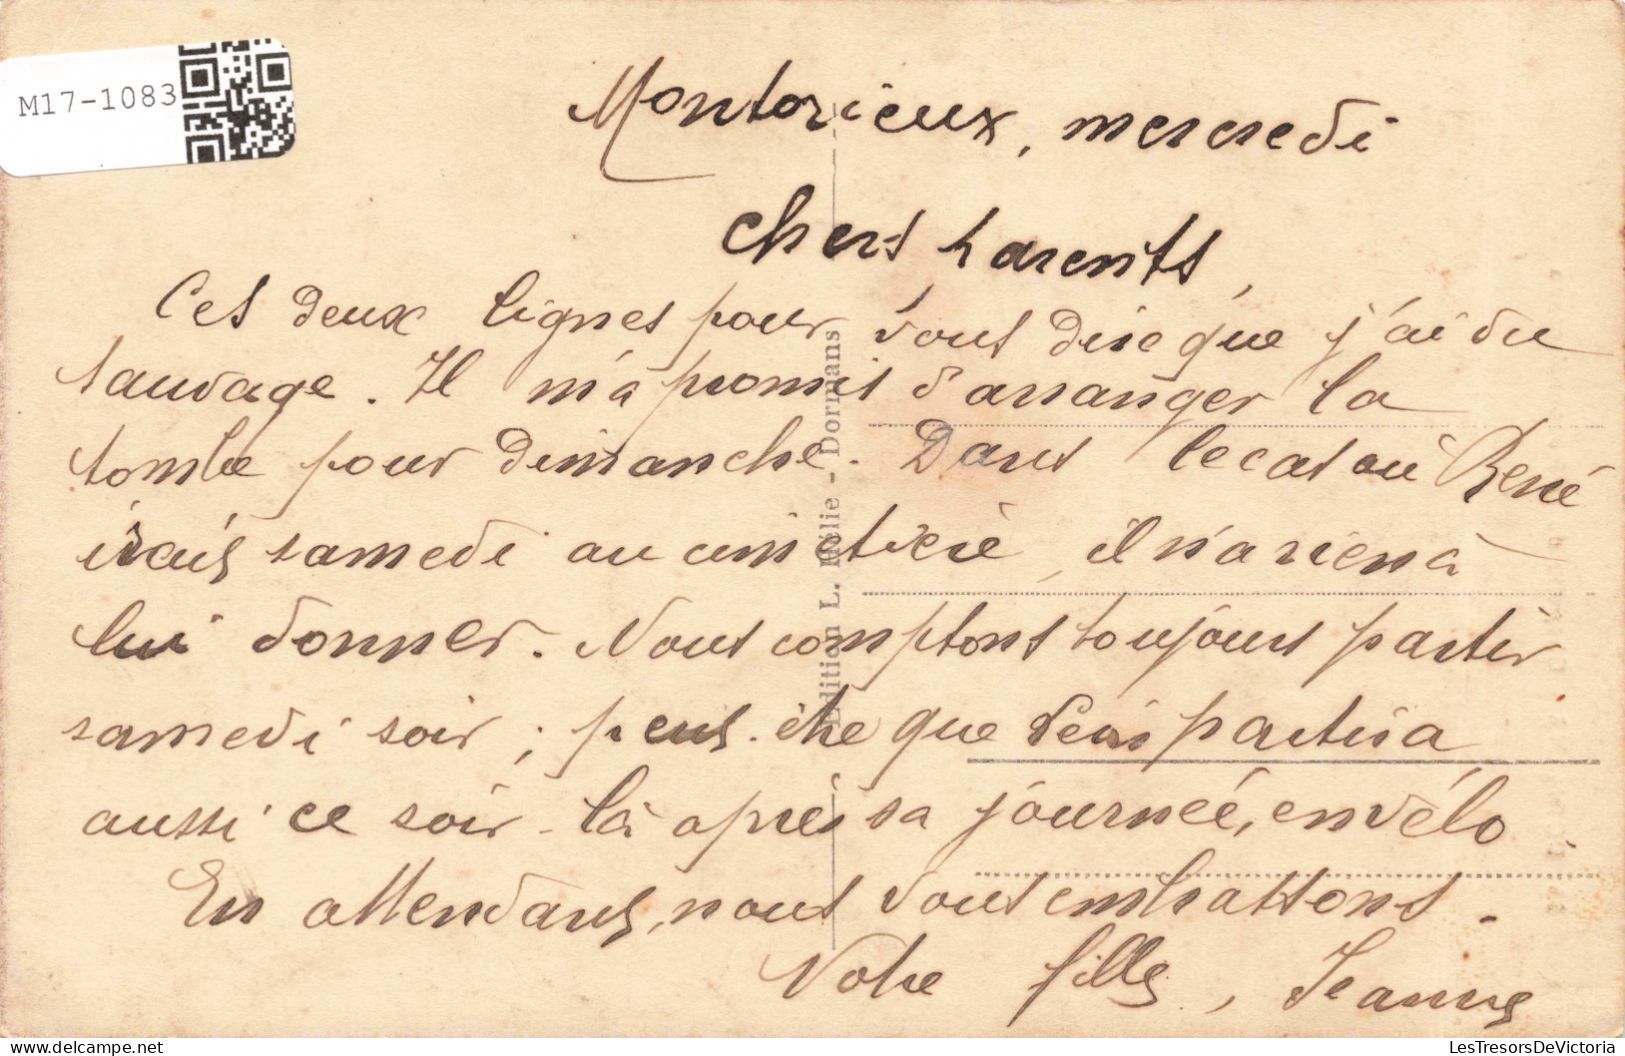 M17-1083
Montorieux, mercredi
Chers Parents,
Ces deux lignes pour vous dire que j'ai vu
Sauvage. Il m'a promis d'arranger la
tombe pour dimanche. Dans le cas où René
irait samedi au cimetière, il n'a rien à
lui donner. Nous comptons toujours partir
samedi soir ; peut-être que partira
aussi ce soir-là après sa journée, en vélo.
En attendant, nous vous embrassons.
Votre fille, Jeanne
Edition L. Hélie - Dormans
LesTresorsDeVictoria.com